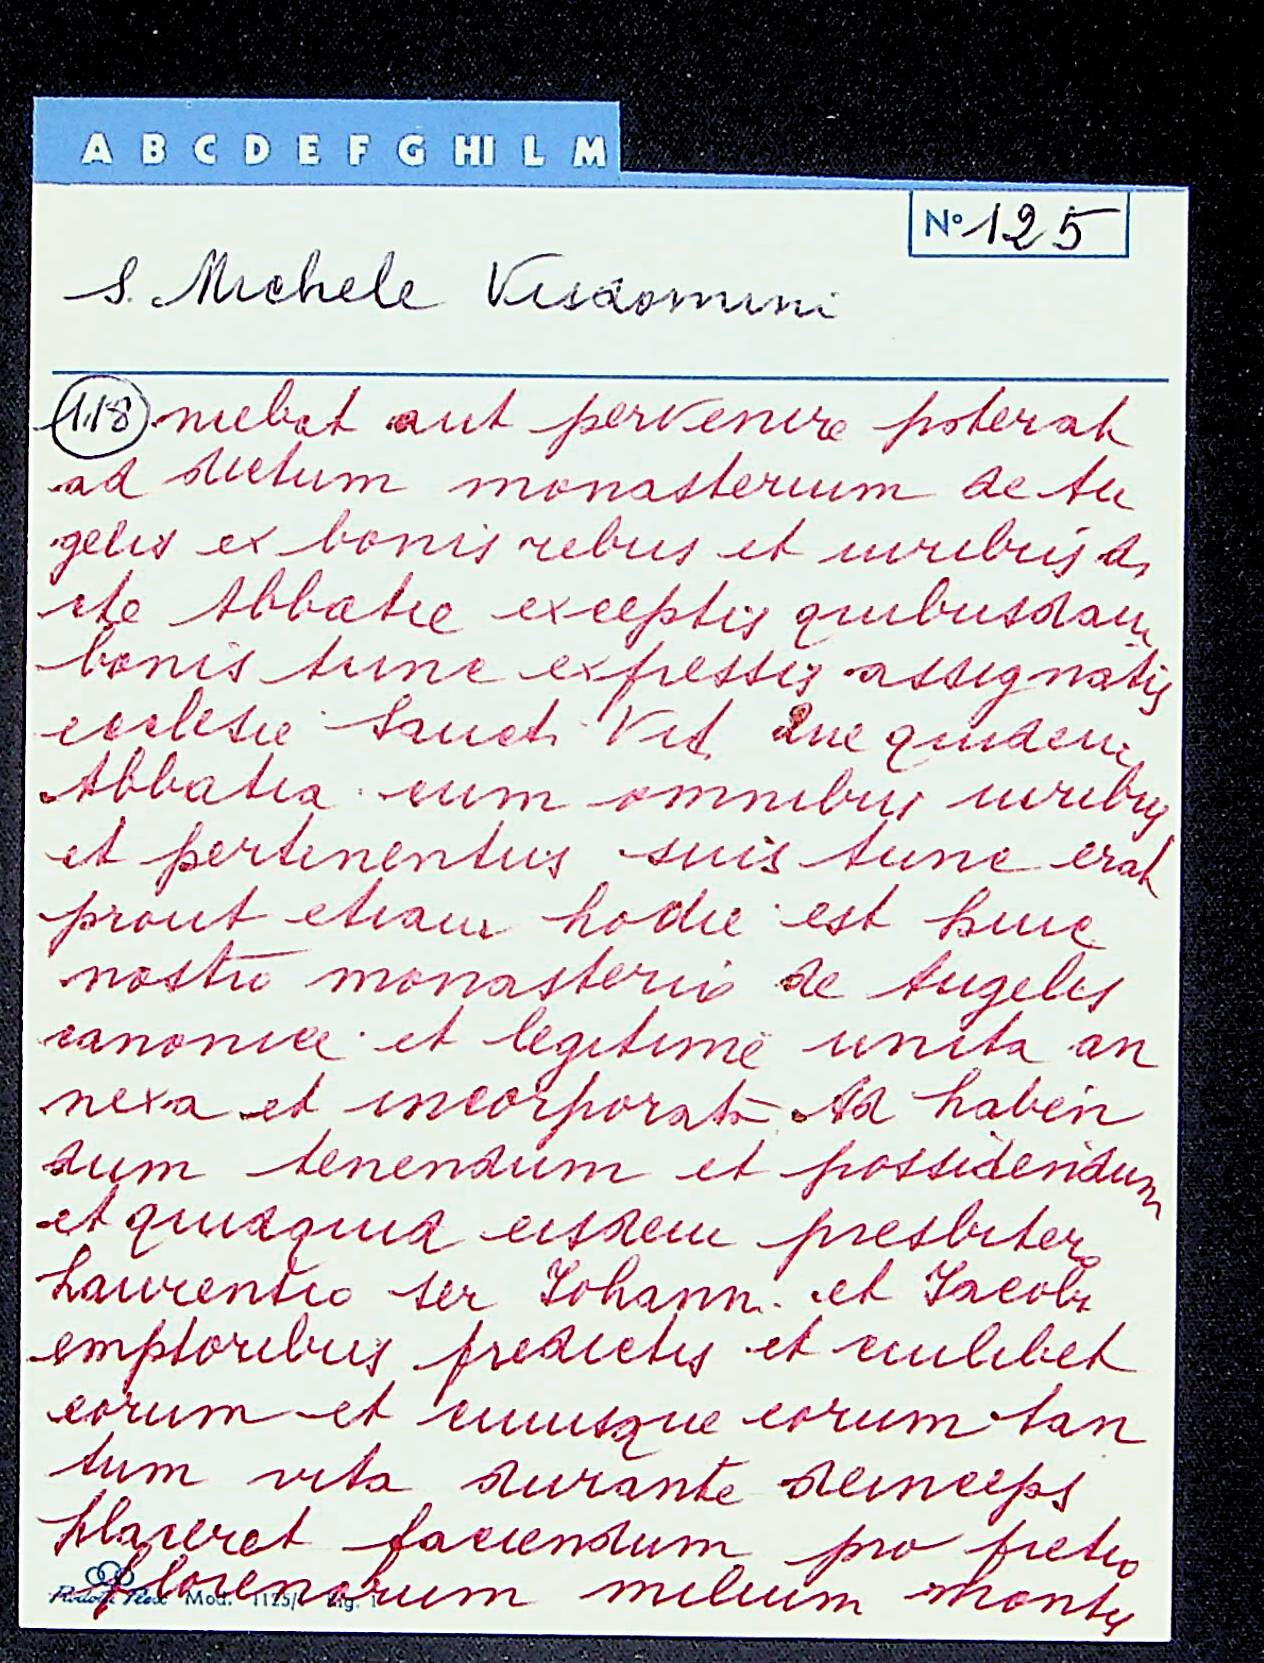 A B C D E F G HI L M
N° 125
S. Michele Visdomini
118 niebat aut pervenire poterat
ad dictum monasterium de An
gelis ex bonis rebus et iuribus di
cte Abbatie exceptis quibusdam
bonis tunc expressis assignatis
ecclesie Sancti Viti Que quidem
Abbatia cum omnibus iuribus
et pertinentiis suis tunc erat
prout etiam hodie est huic
nostro monasterio de Angelis
canonice et legitime unita an
nexa et incorporata Ad haben
dum tenendum et possidendum
et quidquid eisdem presbitero
Laurentio ser Iohann. et Iacobi
emptoribus predictis et cuilibet
eorum et cuiusque eorum tan
tum vita durante deinceps
placeret faciendum pro pretio
florenorum milium montis
Mod. 1125/ Rig. 1